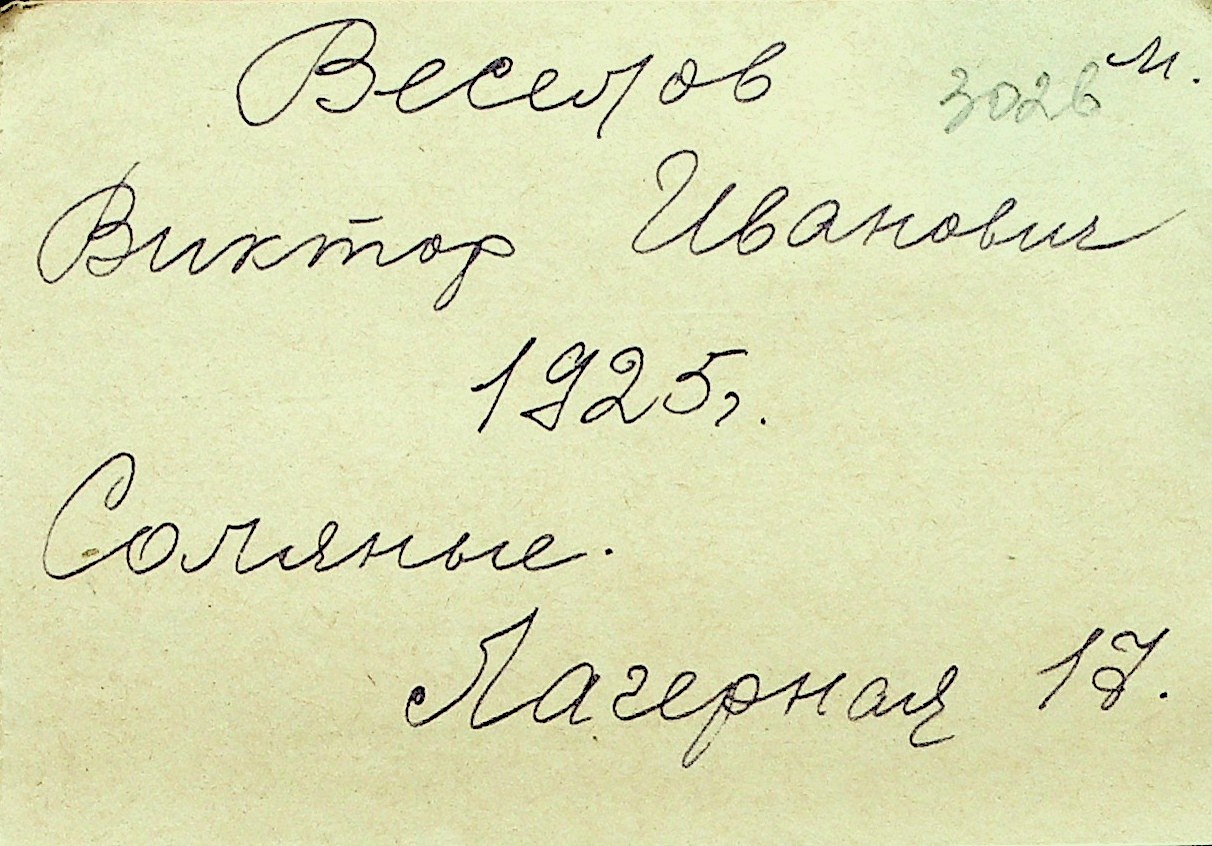 Веселов 3026 м.
Виктор Иванович
1925 г.
Соляные.
Лагерная 17.